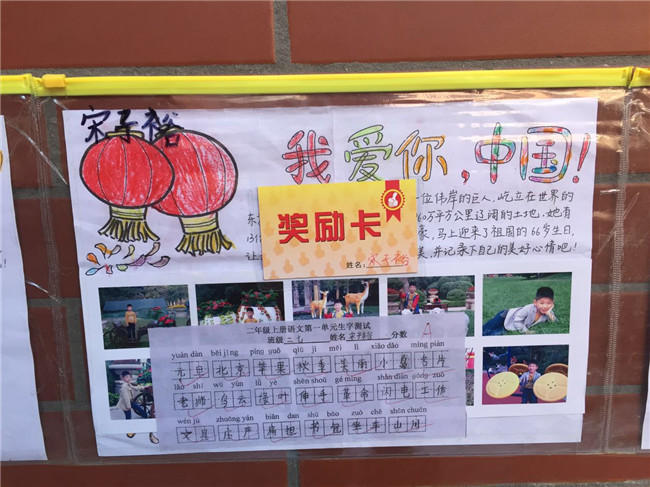 宋子裕
我爱你,中国!
一位伟岸的巨人,屹立在世界的
60万平方公里辽阔的土地,她有
豪,马上迎来了祖国的66岁生日,
美,并记录下自己的美好心情吧!
奖励卡
姓名:宋子裕
二年级上册语文第一单元生字测试
班级 姓名 宋子裕 分数 A
yuán dàn běi jīng píng guǒ qiū jì měi lì xiǎo dǎo míng piàn
元旦 北京 苹果 秋季 美丽 小岛 名片
lǎo shī wū yún lǜ yè shēn shǒu gé mìng shǎn diàn gōng zuò
老师 乌云 绿叶 伸手 革命 闪电 工作
wén jù zhuāng yán biǎn dan shū bāo zuò chē shān chuān
文具 庄严 扁担 书包 坐车 山川